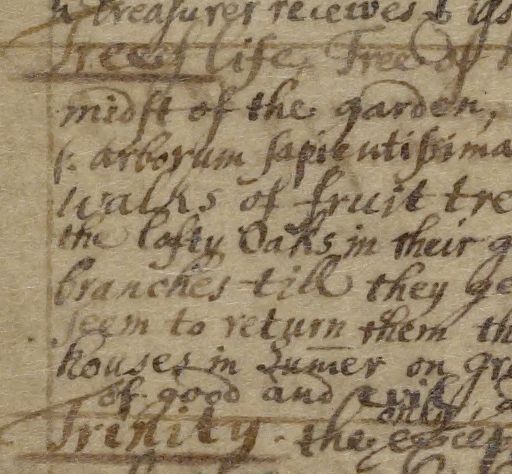 a treasurer receives
Tree of life, Tree of
midst of the garden,
arborum sapientissima
walks of fruit tre
the lofty Oaks in their g
branches till they ge
seem to return them th
houses in Summer on gr
of good and evil,
only
Trinity. the